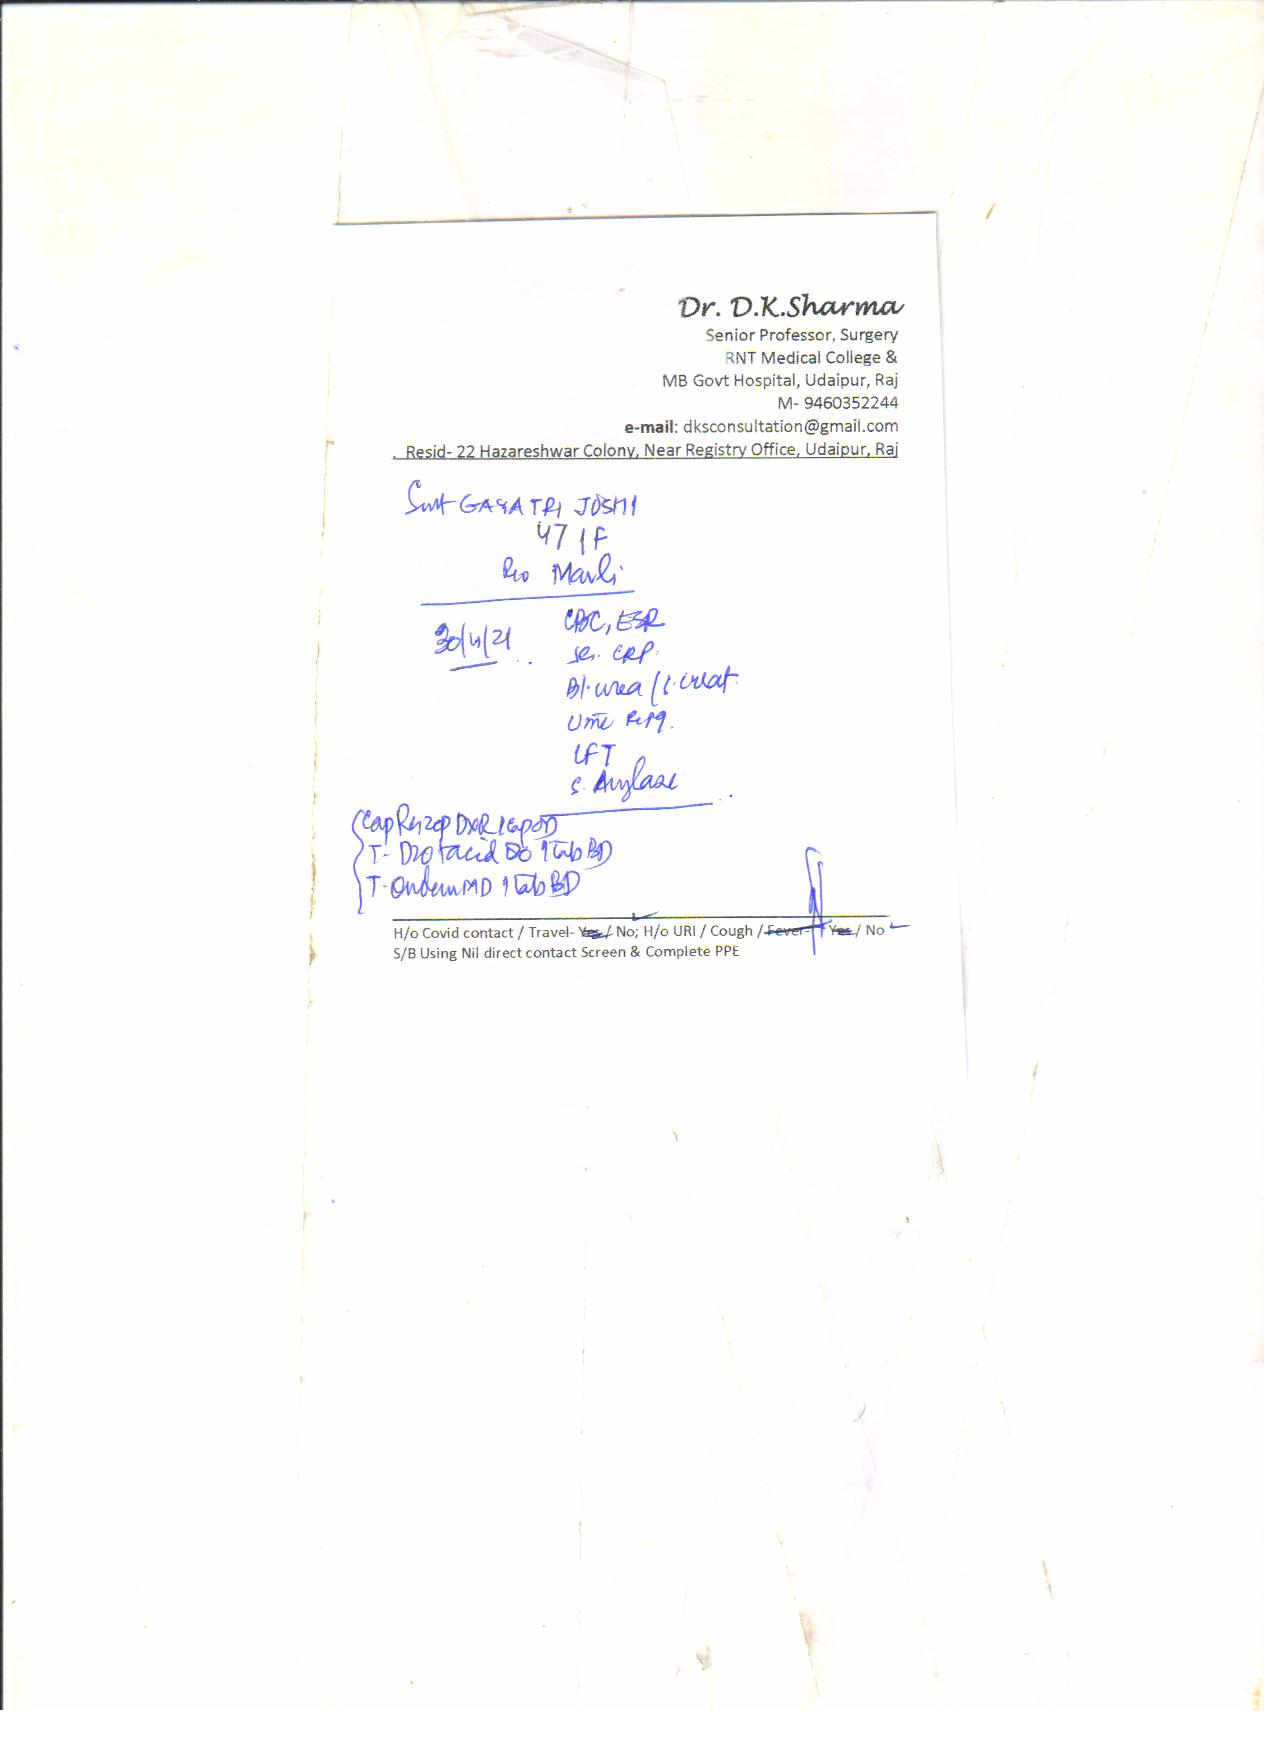 Dr. D.K.Sharma
Senior Professor, Surgery
RNT Medical College &
MB Govt Hospital, Udaipur, Raj
M- 9460352244
e-mail: dksconsultation@gmail.com
. Resid- 22 Hazareshwar Colony, Near Registry Office, Udaipur, Raj
Smt GAYATRI JOSHI
47 / F
R/o Mavli
30/4/21
CBC, ESR
se. CRP.
Bl. urea / S. creat.
LFT
S. Amylase
Cap DSR 1 cap OD
T- Drotacid 1 tab BD
T- Ondem MD 1 tab BD
H/o Covid contact / Travel- Yes / No; H/o URI / Cough / Fever- Yes / No
S/B Using Nil direct contact Screen & Complete PPE